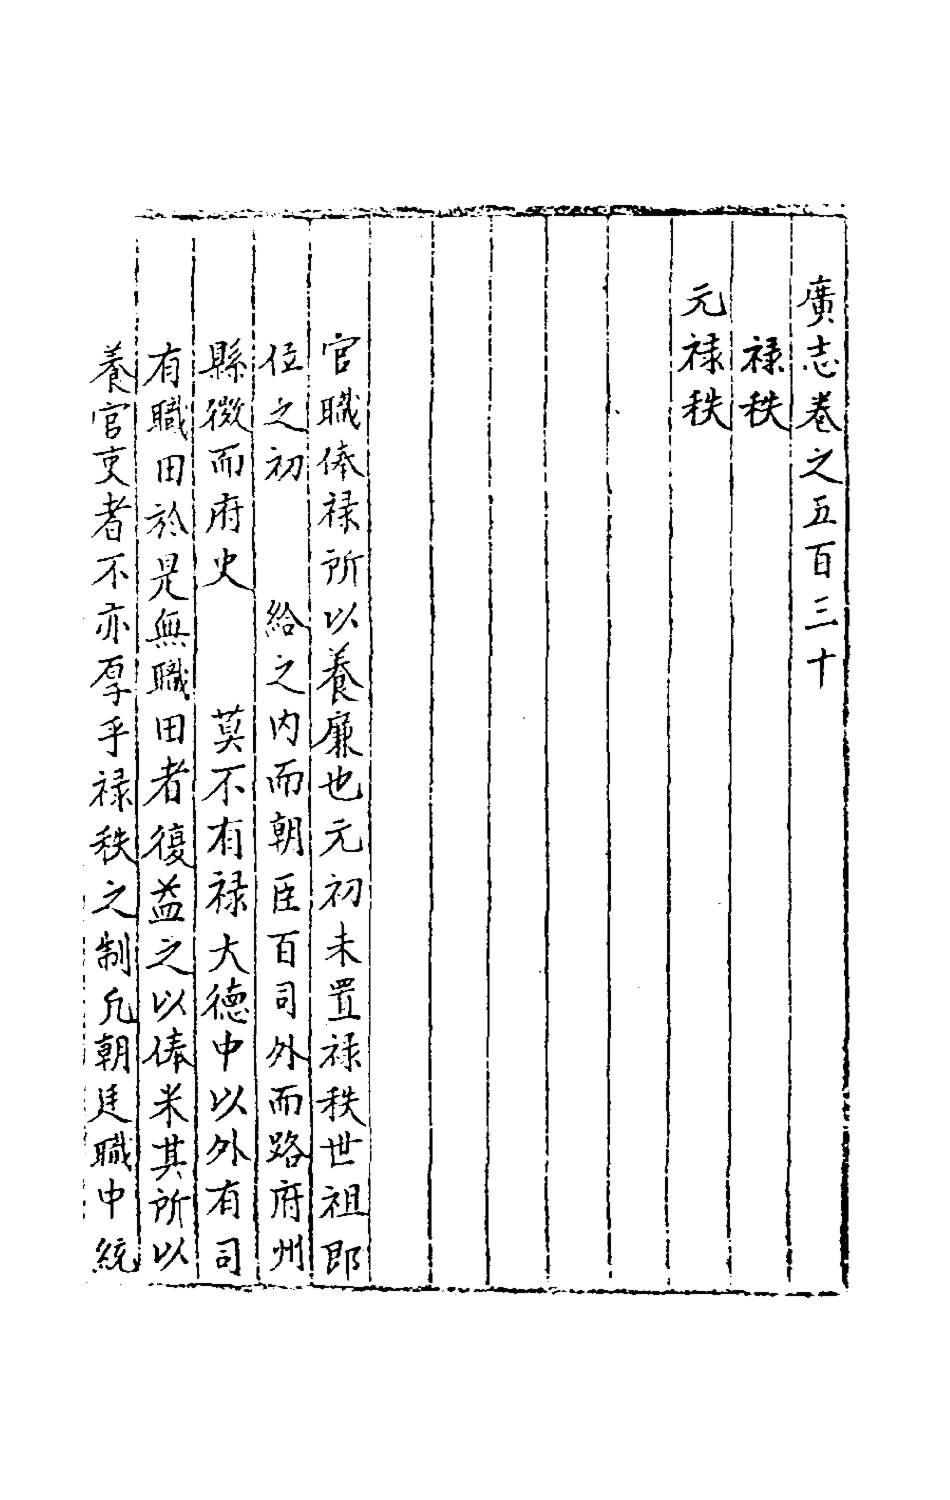 廣志卷之五百三十
禄秩
元禄秩
官職俸禄所以養廉也元初未置禄秩世祖即
位之初　　給之内而朝臣百司外而路府州
縣微而府史　　莫不有禄大德中以外有司
有職田於是無職田者復益之以俸米其所以
養官吏者不亦厚乎禄秩之制凢朝廷職中統